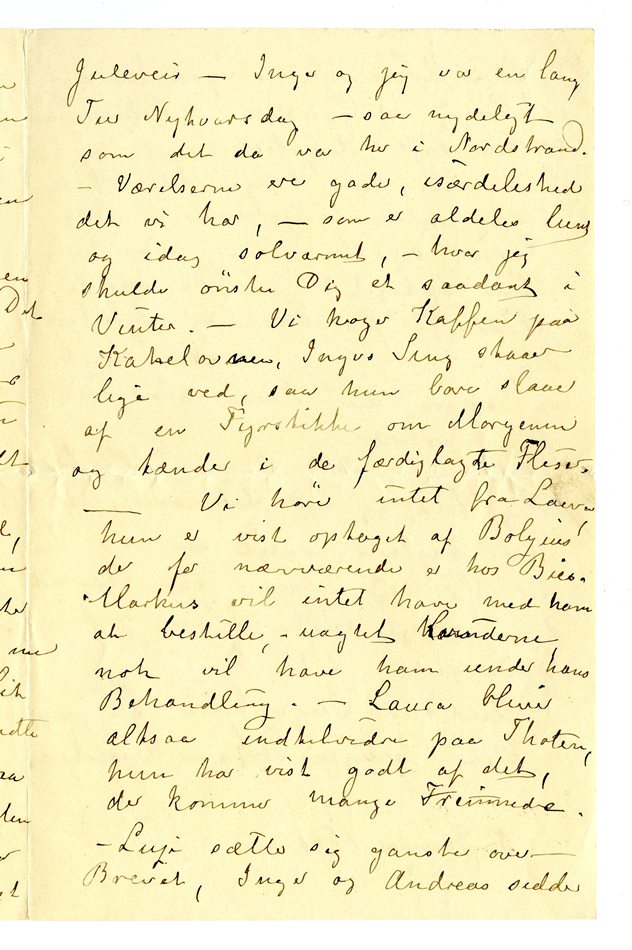 Juleveir – Inger og jeg var en lang
Tur Nytaarsdag – saa nydeligt
som det da var her i Nordstrand.
– Værelserne ere gode, isærdeleshed
det vi har, – som er aldeles lunt
og idag solvarmt, – hvor jeg
skulde önske Dig et saadant i
Vinter. – Vi koger Kaffen paa
Kakelovnen, Ingers Seng staaer
lige ved, saa hun bare slaaer
af en Fyrstikke om Morgenen
og tænder i de færdiglagte Fliser.
– Vi hörer intet fra Laura,
hun er vist optaget af
der for nærværende er hos
Markus vil intet have med ham
at bestille, – uagtet
nok vil have ham under hans
Behandling. – Laura bliver
altsaa indtilvidre paa Thoten,
hun har vist godt af det,
der kommer mange Fremmede.
– sætter sig ganske over
Brevet, Inger og Andreas sidder